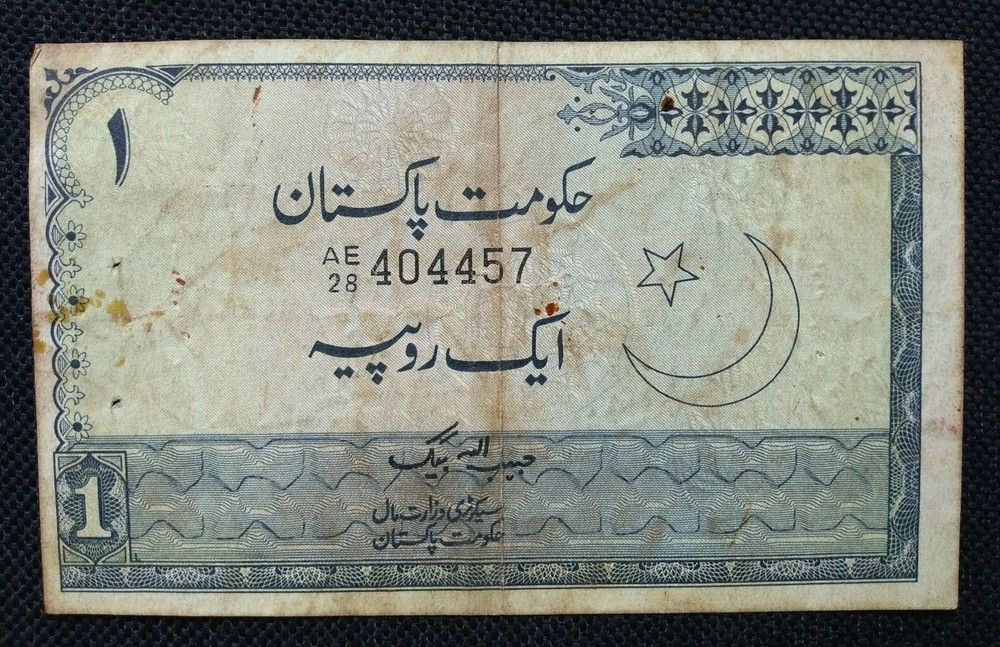 ۱
حکومت پاکستان
AE
28 404457
ایک روپیہ
حبیب اللہ بیگ
سیکرٹری وزارت مال
حکومت پاکستان
1